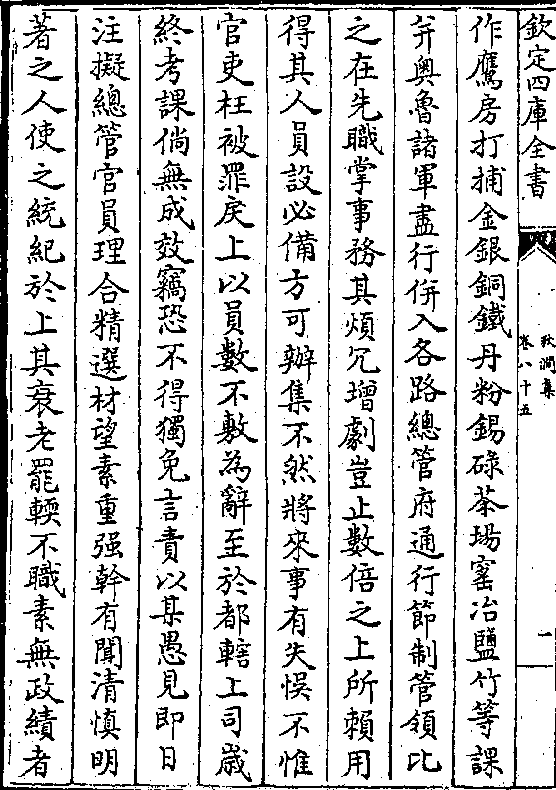 欽定四庫全書
秋澗集
卷八十五
一
作鷹房打捕金銀銅鐵丹粉錫碌茶場窰冶鹽竹等課
并奥魯諸軍盡行併入各路總管府通行節制管領比
之在先職掌事務其煩冗增劇豈止數倍之上所賴用
得其人員設必備方可辦集不然將來事有失悞不惟
官吏枉被罪戾上以員數不敷為辭至於都轄上司嵗
終考課倘無成效竊恐不得獨免言責以某愚見即日
注擬總管官員理合精選材望素重强幹有聞清慎明
著之人使之統紀於上其衰老罷輭不職素無政績者